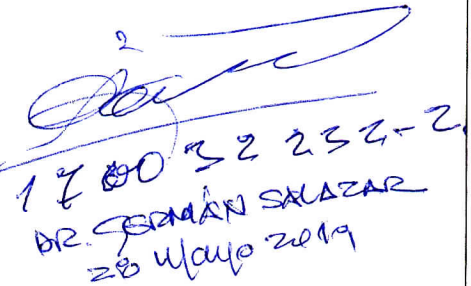 170032232-2
DR. GERMÁN SALAZAR
28 Mayo 2019